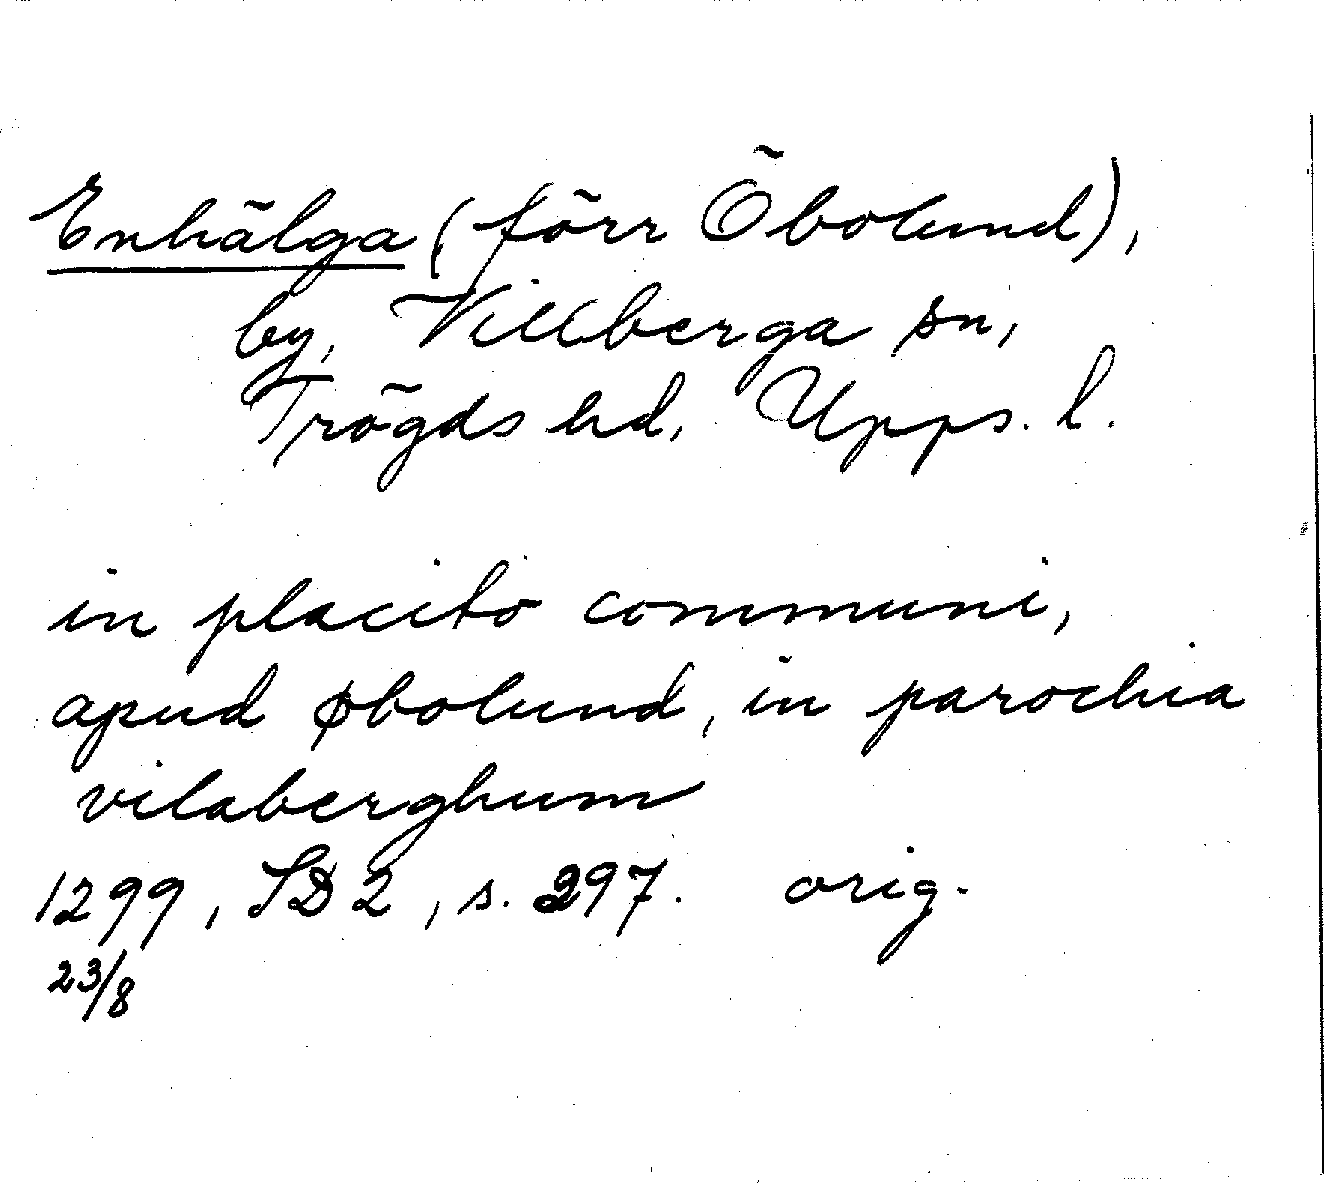 Enhälga (förr Öbolund),
by, Villberga sn,
Trögds hd, Upps. l.
in placito communi,
apud øbolund, in parochia
vilaberghum
1299, SD 2, s. 297. orig.
23/8